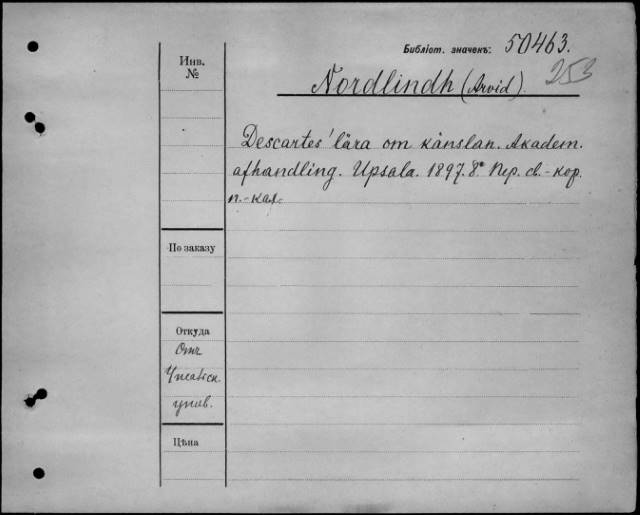 Библіот. значекъ: 50463.
253
Инв.
№
Nordlindh (Arvid).
Descartes' lära om känslan. Akadem.
afhandling. Upsala. 1897. 8° Пер. св.-кор.
п.-кал.
По заказу
Откуда
Отъ
Упсальск.
унив.
Цѣна